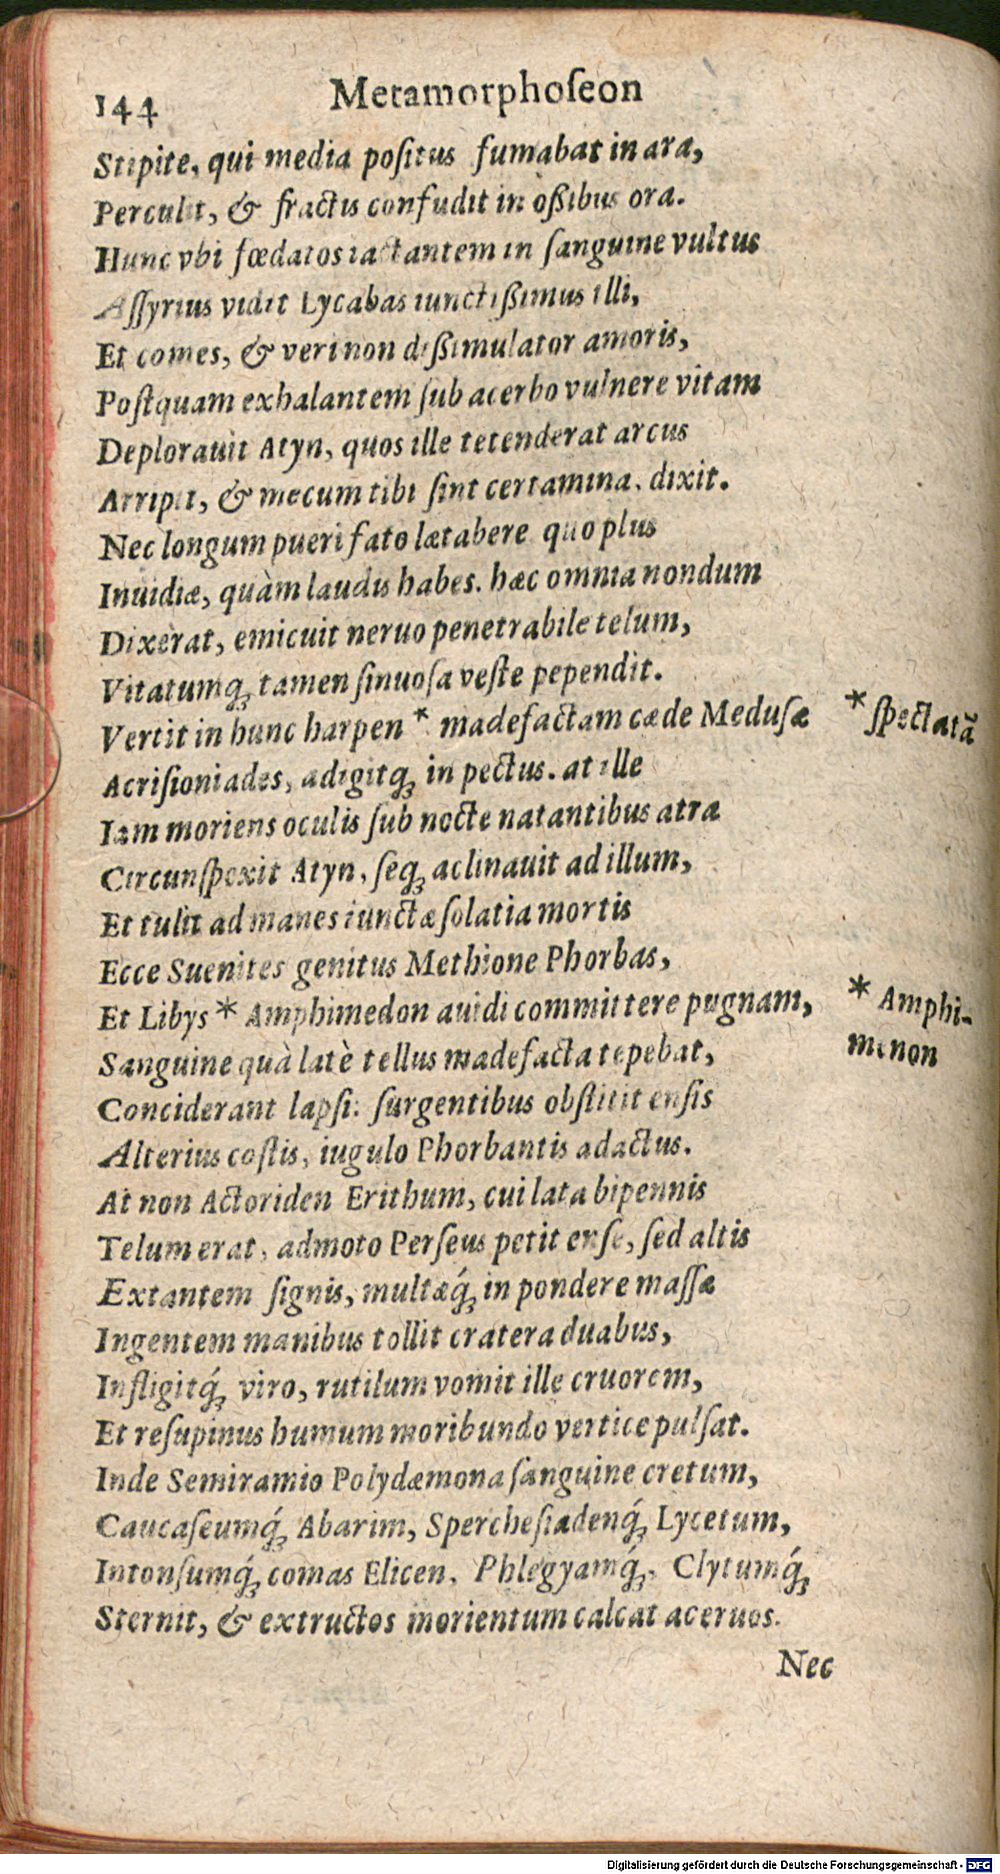 144 Metamorphoſeon
Stipite, qui media poſitus fumabat in ara,
Perculit, & fractis confudit in oßibus ora.
Hunc vbi fœdatos iactantem in ſanguine vultus
Aſſyrius vidit Lycabas iunctißimus illi,
Et comes, & veri non dißimulator amoris,
Poſtquam exhalantem ſub acerbo vulnere vitam
Deplorauit Atyn, quos ille tetenderat arcus
Arripit, & mecum tibi ſint certamina, dixit.
Nec longum pueri fato lætabere quo plus
Inuidiæ, quàm laudis habes. hæc omnia nondum
Dixerat, emicuit neruo penetrabile telum,
Vitatumq́; tamen ſinuoſa veſte pependit.
Vertit in hunc harpen * madefactam cæde Meduſæ
* ſpectatã
Acriſioniades, adigitq́; in pectus. at ille
Iam moriens oculis ſub nocte natantibus atra
Circunſpexit Atyn, ſeq́; aclinauit ad illum,
Et tulit ad manes iunctæ ſolatia mortis
Ecce Suenites genitus Methione Phorbas,
Et Libys * Amphimedon auidi committere pugnam,
* Amphi-
menon
Sanguine quà latè tellus madefacta tepebat,
Conciderant lapſi: ſurgentibus obſtitit enſis
Alterius coſtis, iugulo Phorbantis adactus.
At non Actoriden Erithum, cui lata bipennis
Telum erat, admoto Perſeus petit enſe, ſed altis
Extantem ſignis, multæq́; in pondere maſſæ
Ingentem manibus tollit cratera duabus,
Infligitq́; viro, rutilum vomit ille cruorem,
Et reſupinus humum moribundo vertice pulſat.
Inde Semiramio Polydæmona ſanguine cretum,
Caucaſeumq́; Abarim, Spercheſiadenq́; Lycetum,
Intonſumq́; comas Elicen, Phlegyamq́;, Clytumq́;
Sternit, & extructos morientum calcat aceruos.
Nec
Digitalisierung gefördert durch die Deutsche Forschungsgemeinschaft - DFG